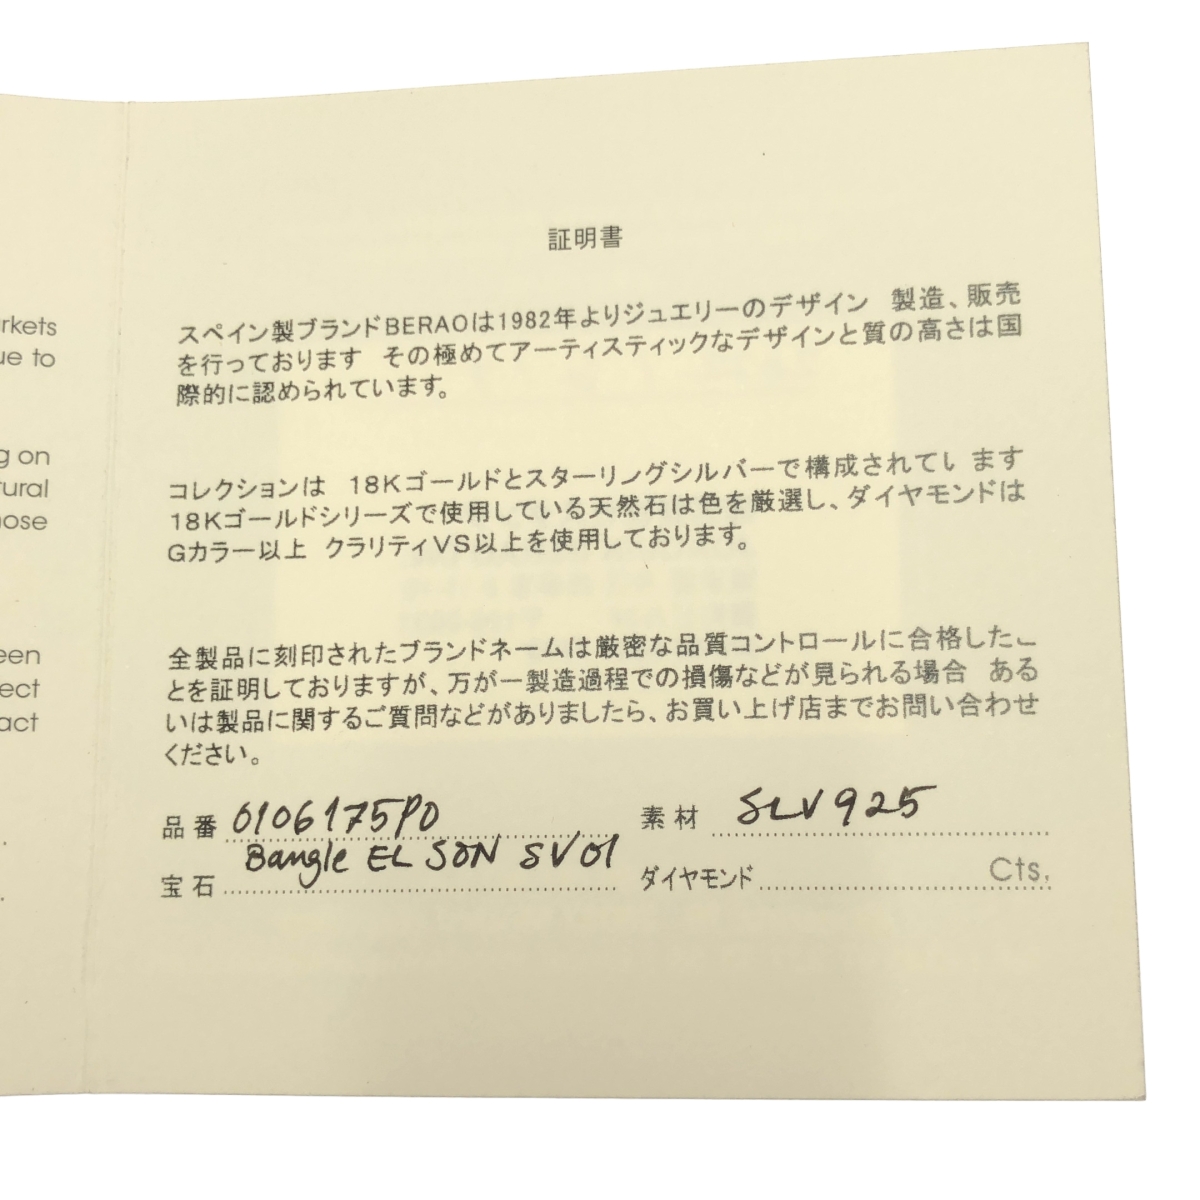 rkets
ue to
g on
tural
ose
een
ect
act
証明書
スペイン製ブランドBERAOは1982年よりジュエリーのデザイン 製造、販売
を行っております その極めてアーティスティックなデザインと質の高さは国
際的に認められています。
コレクションは 18Kゴールドとスターリングシルバーで構成されてい ます
18Kゴールドシリーズで使用している天然石は色を厳選し、ダイヤモンドは
Gカラー以上 クラリティVS以上を使用しております。
全製品に刻印されたブランドネームは厳密な品質コントロールに合格したこ
とを証明しておりますが、万が一製造過程での損傷などが見られる場合 ある
いは製品に関するご質問などがありましたら、お買い上げ店までお問い合わせ
ください。
品番 0106175PD 素材 SLV925
Bangle EL SON SV01
宝石 ダイヤモンド Cts,